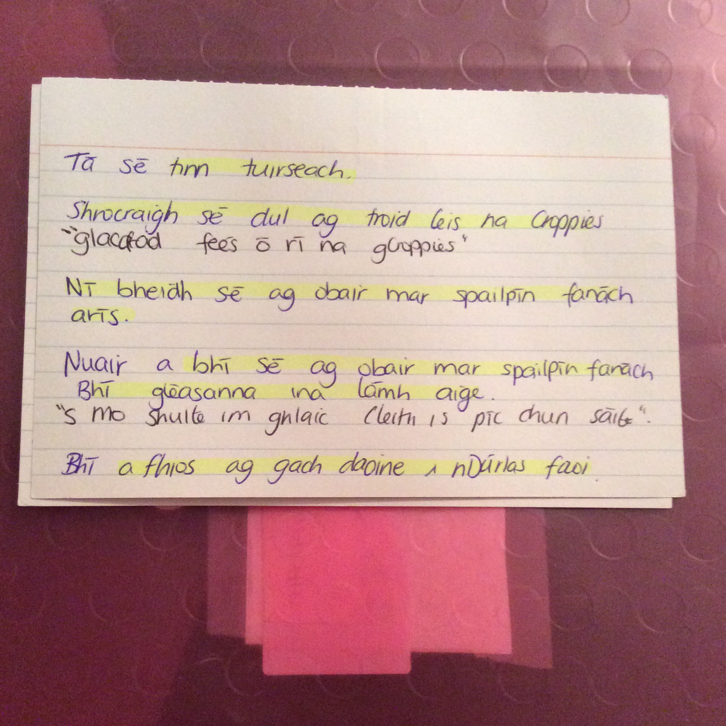 Tā sē tinn tuirseach.
Shrocraigh sē dul ag troid leis na Croppies
"glacafod fees ō rī na gCroppies"
Nī bheidh sē ag obair mar spailpīn fanāch
arīs.
Nuair a bhī sē ag obair mar spailpīn fanāch
Bhī glēasanna ina lāmh aige.
"S mo shuite im ghlaic Cleith is pīc chun sāite".
Bhī a fhios ag gach daoine i nDūrlas faoi.